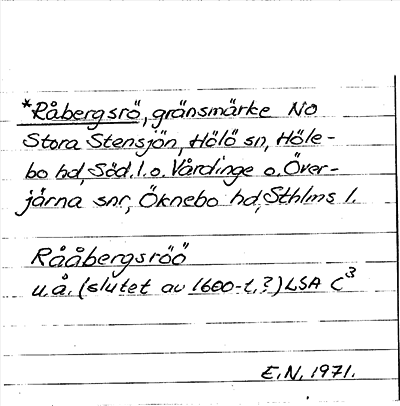 *Råbergsrö, gränsmärke NO
Stora Stensjön, Hölö sn, Höle-
bo hd, Söd. l. o. Vårdinge o. Över-
järna snr, Öknebo hd, Sthlms l.
Rååbergsröö
u.å. (slutet av 1600-t.?) LSA C3
E.N. 1971.